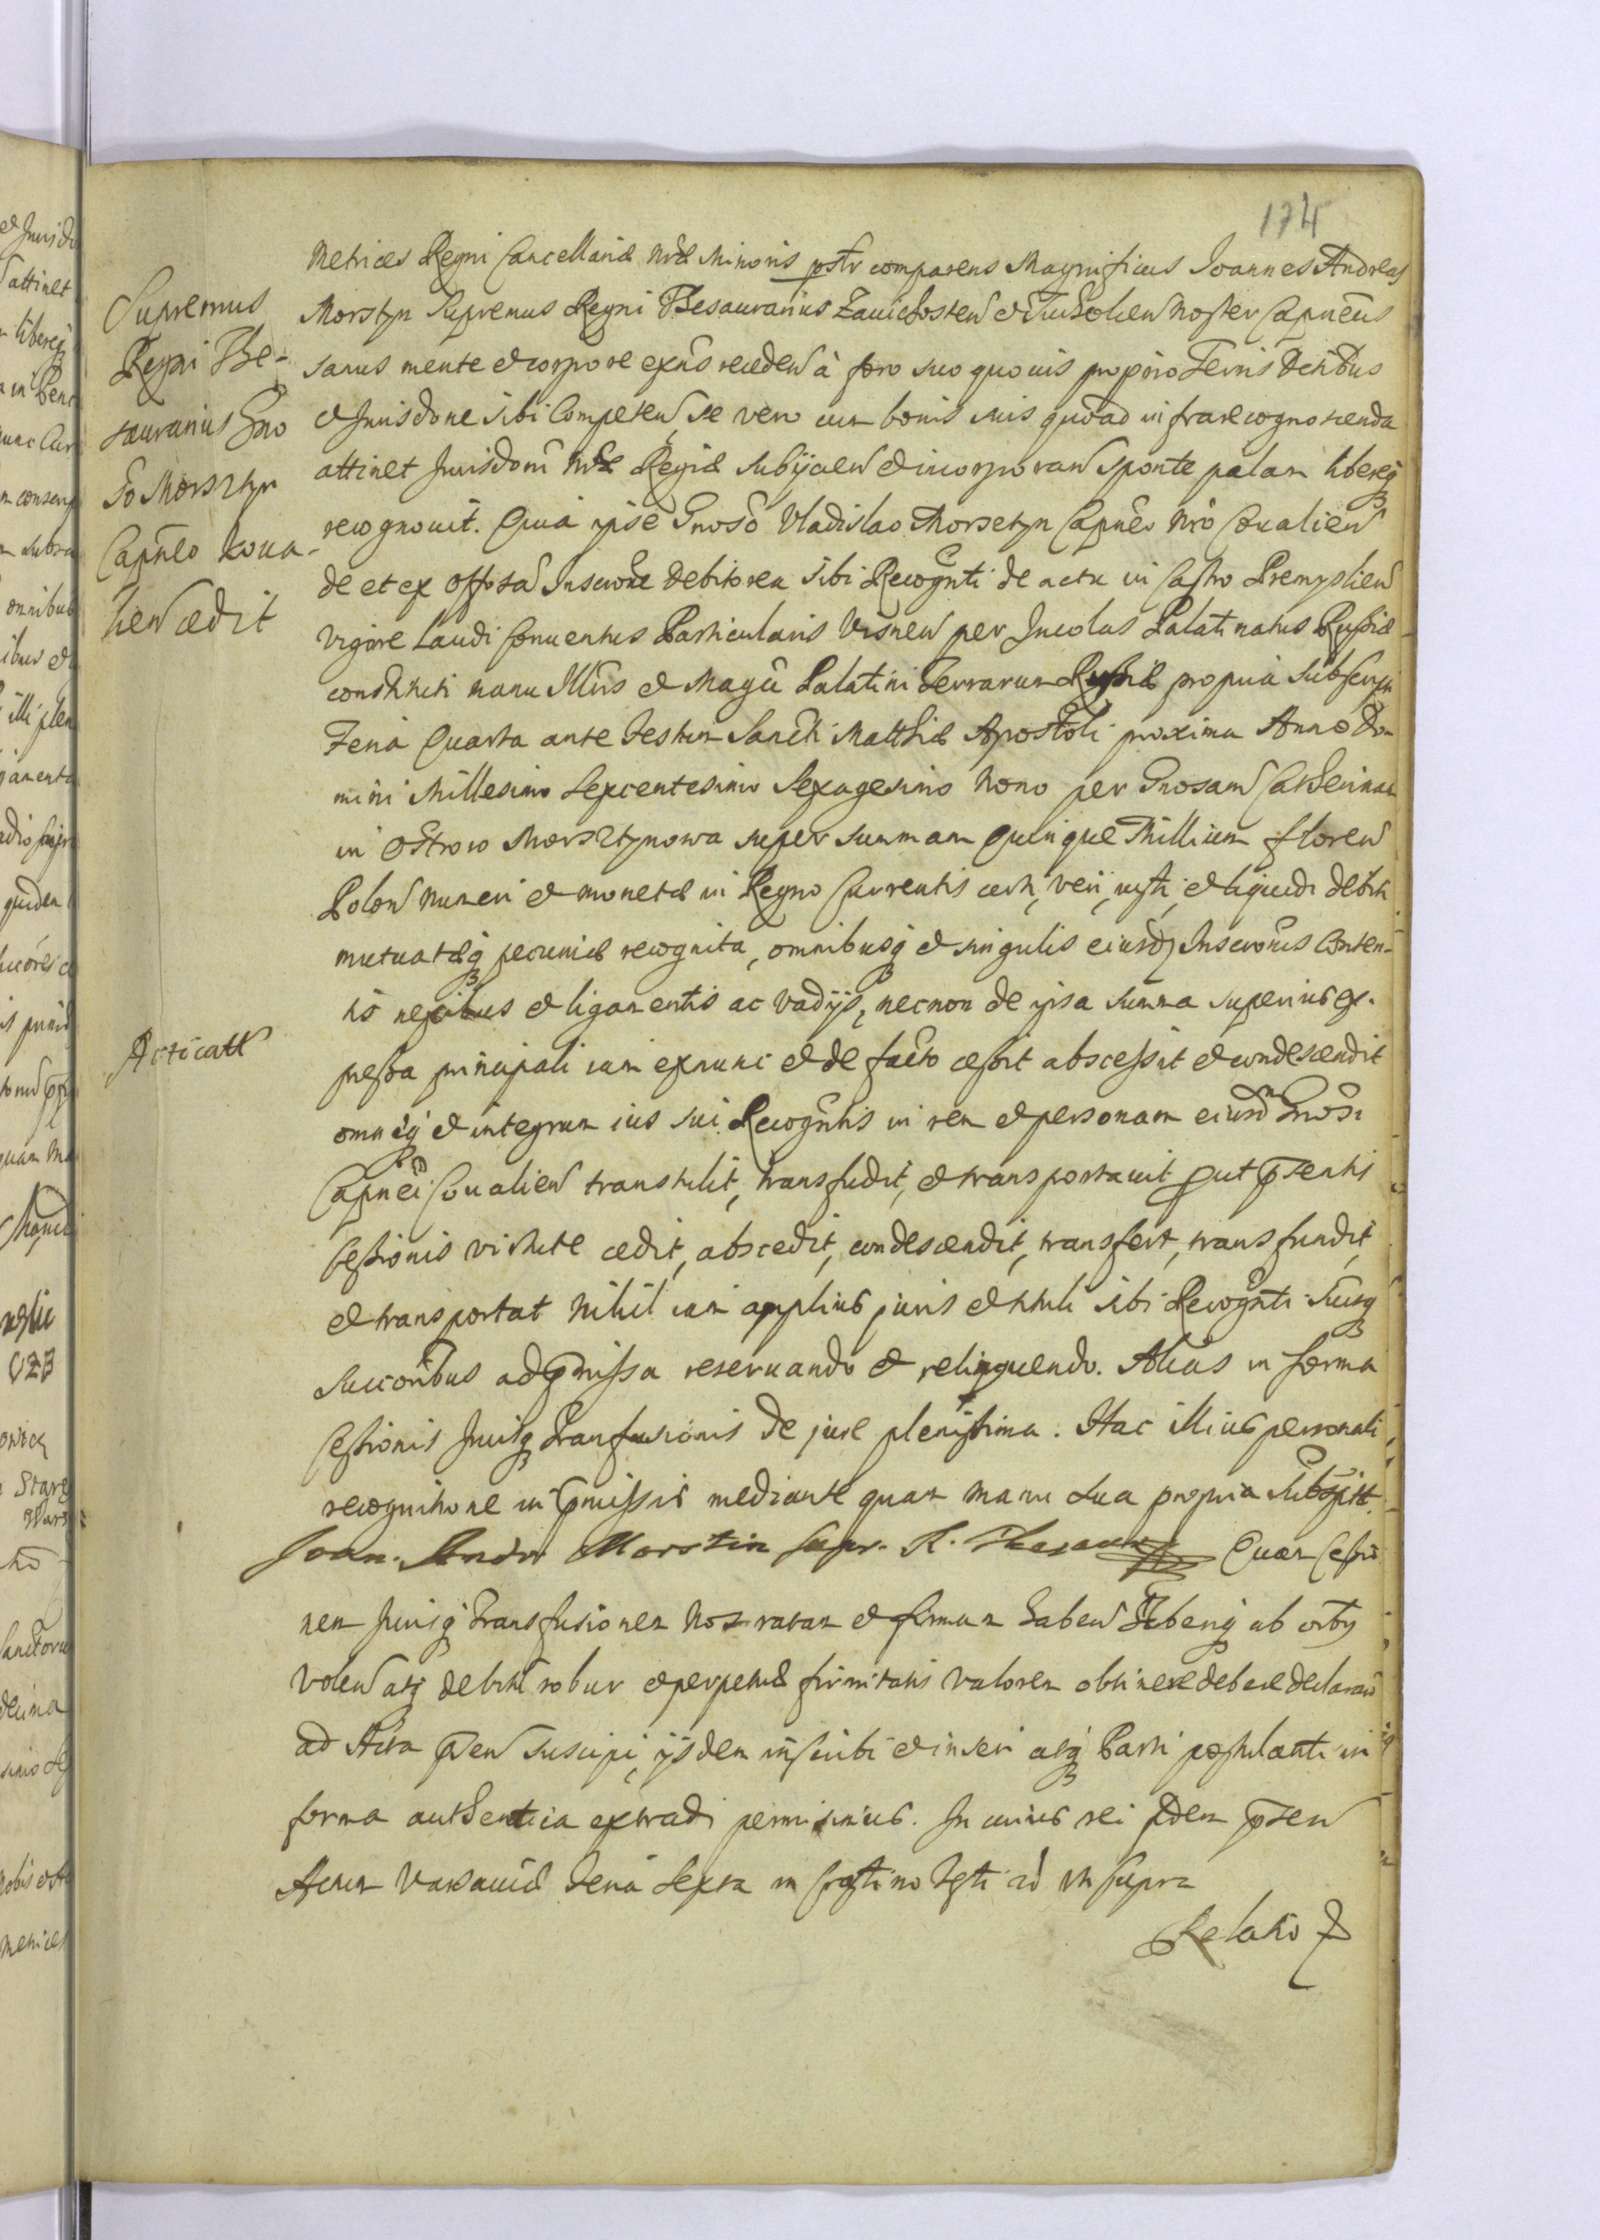 174
Supremus
Regni The-
saurarius Gno
so Morsztyn
Capneo Koua-
lien cedit
Acticatt
Metrices Regni Cancellariæ nræ Minoris psltr comparens Magnificus Ioannes Andreas
Morstyn Supremus Regni Thesaurarius Zavichosten et Tucholien Noster Capneus
sanus mente et corpore exns receden à foro suo quovis proprio Terris
et Jurisdone sibi Competen, se vero cum bonis suis quoad infra recognoscenda
attinet Jurisdoni nræ Regiæ subijcien et incorporan sponte palam libereq
recognovit. Quia ipse Gnoso Vladislao Morsztyn Capneo nro Coualien
de et ex Inscrone debitorea sibi Recognti de actu in Castro Premyslien
vigore Laudi Conventus Particularis Visnen per Incolas Palatinatus Russiæ
constituti manu Illris et Magci Palatini Terrarum Russiæ propria subscrpti
Feria Quarta ante Festum Sancti Matthiæ Apostoli proxima Anno Do-
mini Millesimo Sexcentesimo Sexagesimo Nono per Gnosam Catherinam
in Ostrow Morsztynowa super summam Quinque Millium floren
Polon numeri et monetæ in Regno Currentis certi, veri, iusti, et liquidi debiti
mutuatæq pecuniæ recognita, omnibusq et singulis eiusd Inscronis Conten-
tis nexibus et ligamentis ac vadijs, necnon de ipsa summa superius ex-
pressa principali iam exnunc et de facto cessit abscessit et condescendit
omneq et integrum ius sui Recogntis in rem et personam eiusdm Gnosi
Capnei Coualien transtulit, transfudit, et transportavit prout pntis
Cessionis virtute cedit, abscedit, condescendit, transfert, transfundit,
et transportat nihil iam amplius juris et tituli sibi Recognti Suisq
succoribus ad pmissa reservando et relinquendo. Alias in forma
Cessionis Jurisq Transfusionis de jure plenissima. Hac illius personali
recognitione in pmissis mediante quam manu sua propria subscpsit.
Joan. Andr Morstin Supr. R. Thesaur Quam Cessio
nem Jurisq Transfusionem Nos ratam et firmam haben ab
volen atq debitu robur et perpetuæ firmitatis valorem obtinere debere declaran
ad Acta pnen suscipi, ijsdem inscribi et inseri atq Parti postulanti in
forma authentica extradi permisimus. In cuius rei fidem psen
Actum Varsaviæ Feria Sexta in Crastino Fsti ut supra
Relatio